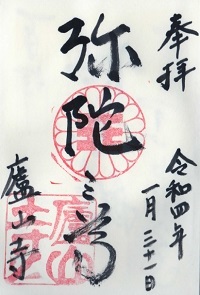 奉拝
令和四年
一月三十一日
弥陀三尊
廬山寺